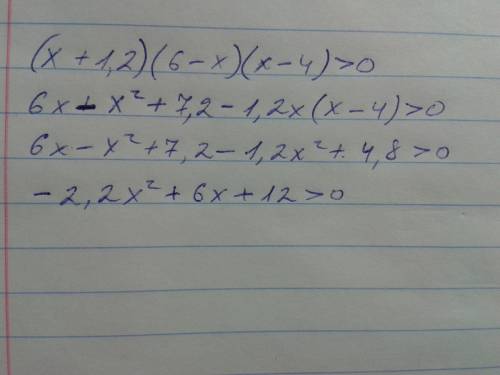 (x + 1,2)(6 - x)(x - 4) > 0
6x - x² + 7,2 - 1,2x(x - 4) > 0
6x - x² + 7,2 - 1,2x² + 4,8 > 0
- 2,2x² + 6x + 12 > 0